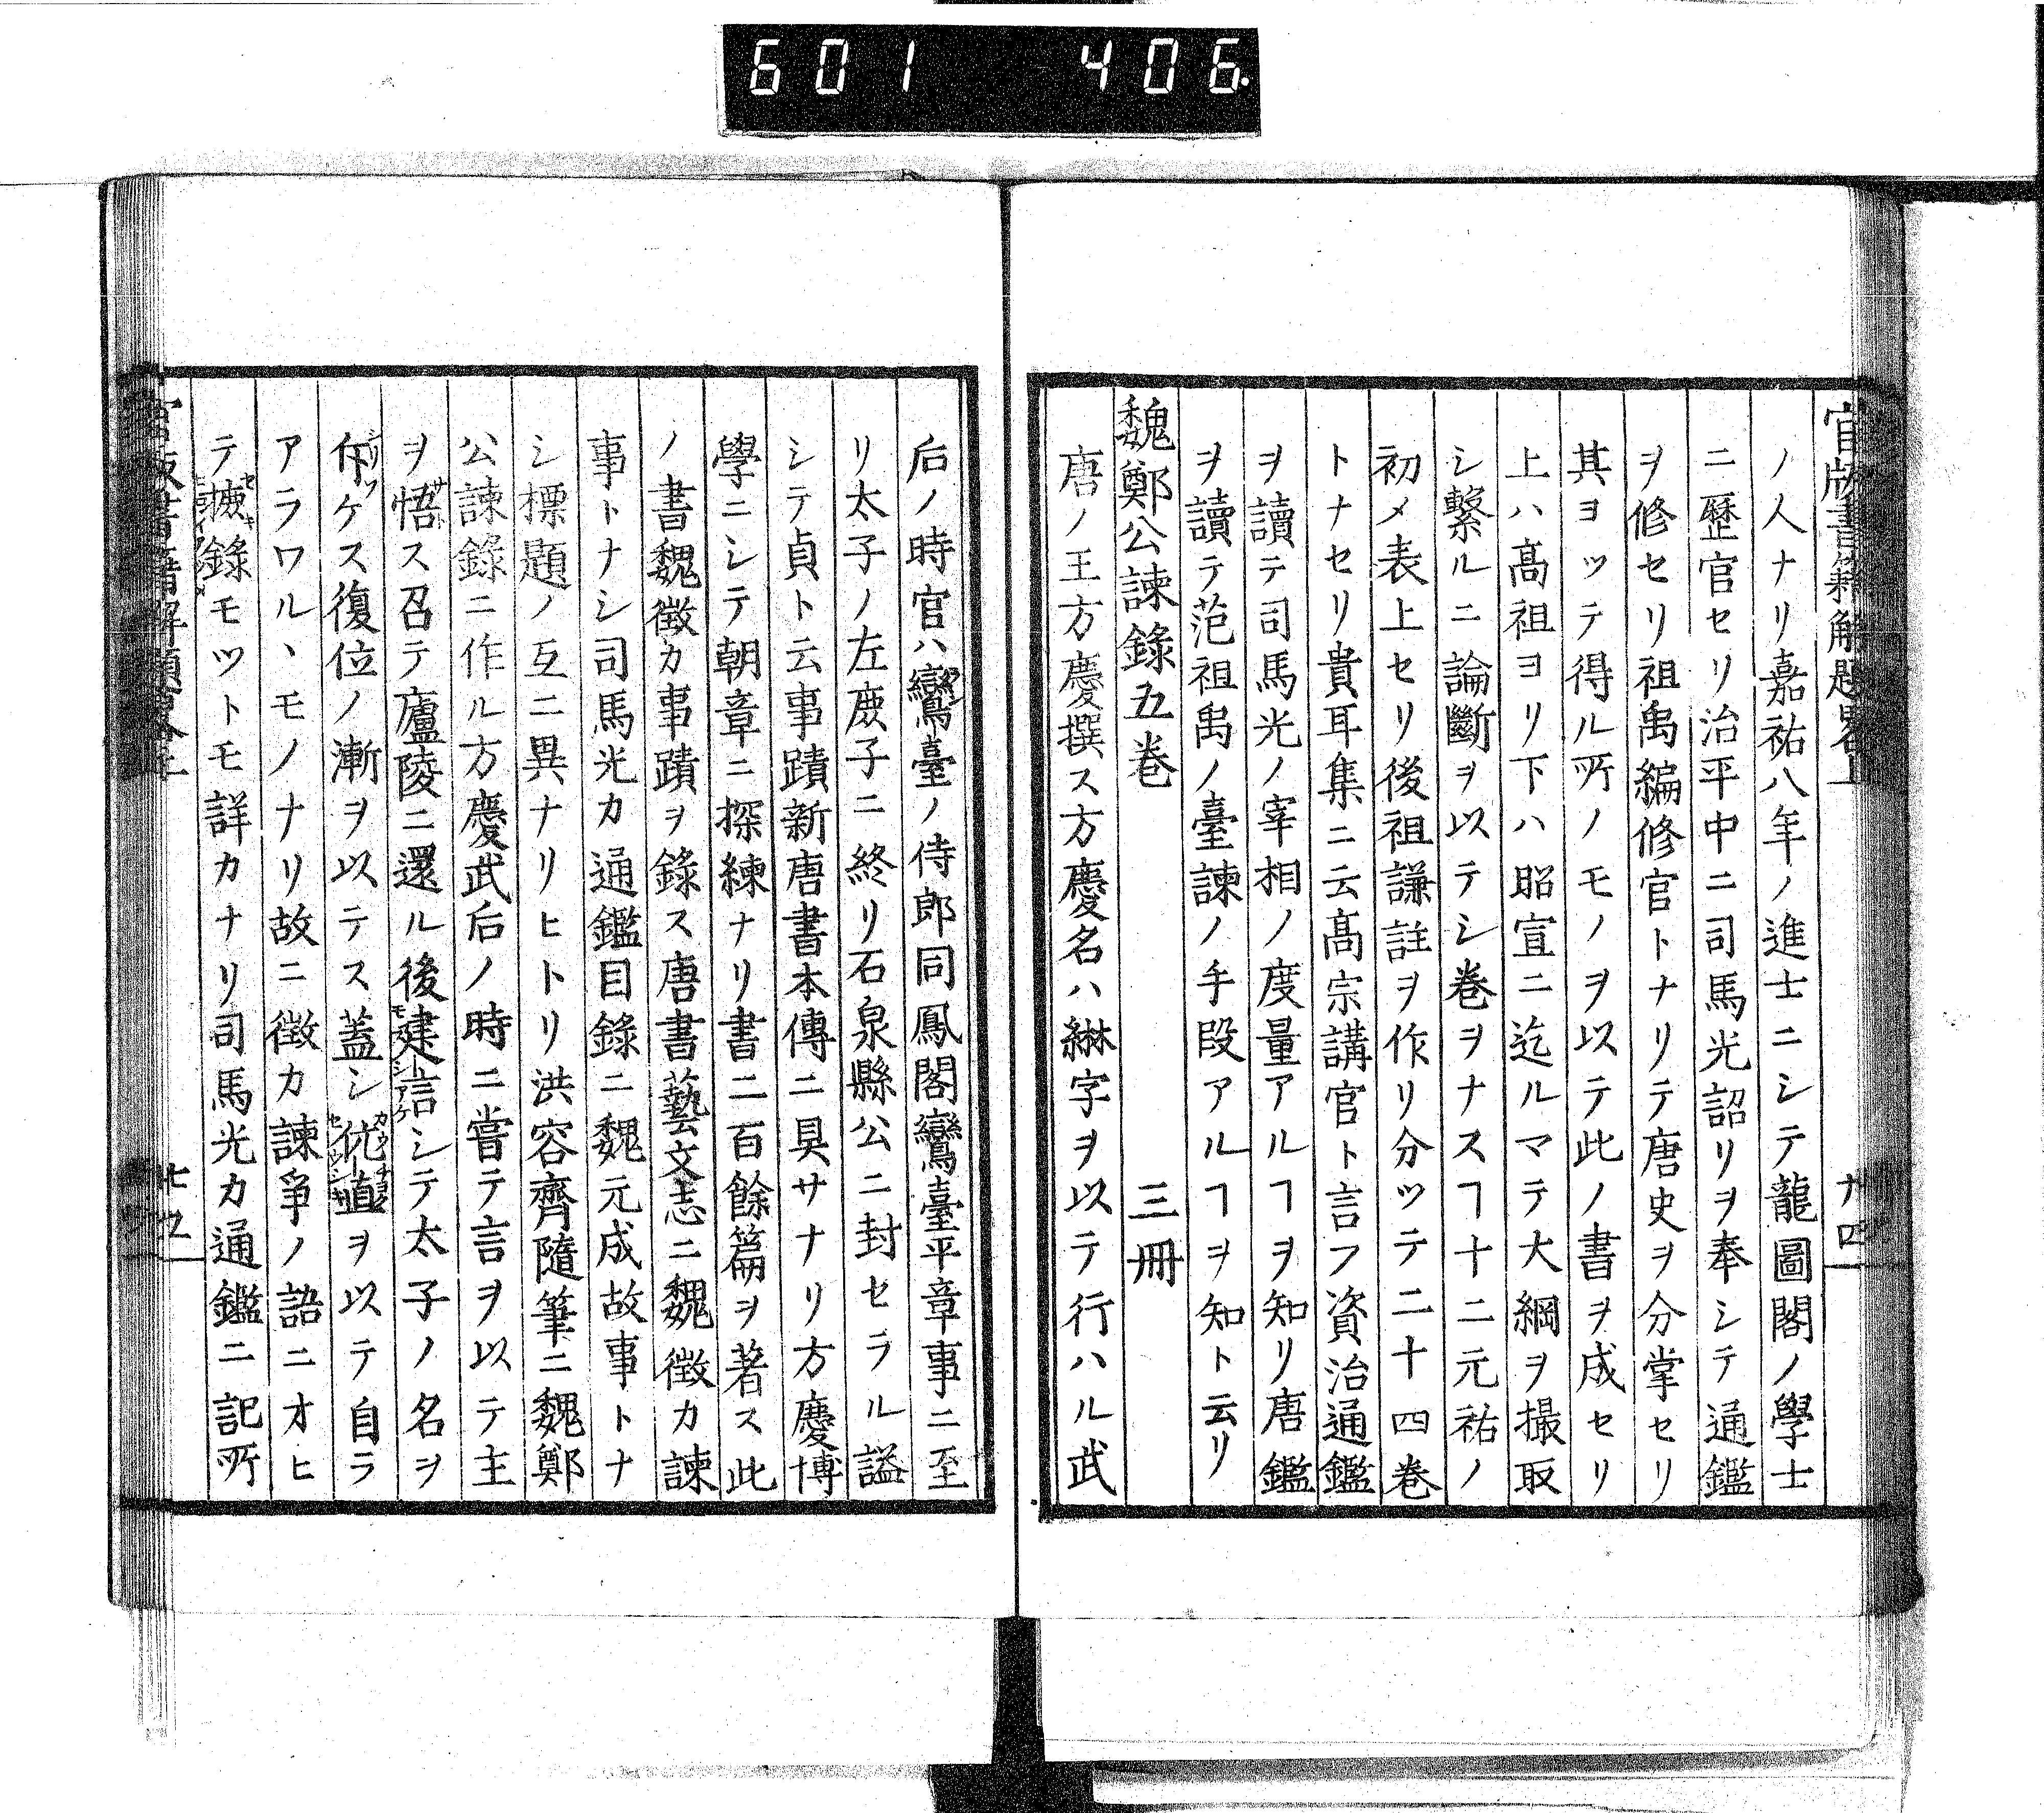 601 406.
官版書籍解題畧上
廿四
ノ人ナリ嘉祐八年ノ進士ニシテ龍圖閣ノ學士
ニ歷官セリ治平中ニ司馬光詔リヲ奉シテ通鑑
ヲ修セリ祖禹編修官トナリテ唐史ヲ分掌セリ
其ヨツテ得ル所ノモノヲ以テ此ノ書ヲ成セリ
上ハ髙祖ヨリ下ハ昭宣ニ迄ルマテ大綱ヲ撮取
シ繫ルニ論斷ヲ以テシ巻ヲナスヿ十二元祐ノ
初メ表上セリ後祖謙註ヲ作リ分ツテ二十四巻
トナセリ貴耳集ニ云髙宗講官ト言フ資治通鑑
ヲ讀テ司馬光ノ宰相ノ度量アルヿヲ知リ唐鑑
ヲ讀テ范祖禹ノ臺諫ノ手段アルヿヲ知ト云リ
魏鄭公諫錄五巻 三冊
唐ノ王方慶撰ス方慶名ハ綝字ヲ以テ行ハル武
后ノ時官ハ鸞臺ノ侍郎同鳳閣鸞臺平章事ニ至
リ太子ノ左庶子ニ終リ石泉縣公ニ封セラル謚
シテ貞ト云事蹟新唐書本傳ニ具サナリ方慶博
學ニシテ朝章ニ探練ナリ書二百餘篇ヲ著ス此
ノ書魏徴カ事蹟ヲ錄ス唐書藝文志ニ魏徴カ諫
事トナシ司馬光カ通鑑目錄ニ魏元成故事トナ
シ標題ノ互ニ異ナリヒトリ洪容齊隨筆ニ魏鄭
公諫錄ニ作ル方慶武后ノ時ニ嘗テ言ヲ以テ主
ヲ悟ス召テ廬陵ニ還ル後建言シテ太子ノ名ヲ
斥ケス復位ノ漸ヲ以テス蓋シ伉直ヲ以テ自ラ
アラワル、モノナリ故ニ徴カ諫爭ノ語ニオヒ
テ摭錄モツトモ詳カナリ司馬光カ通鑑ニ記所